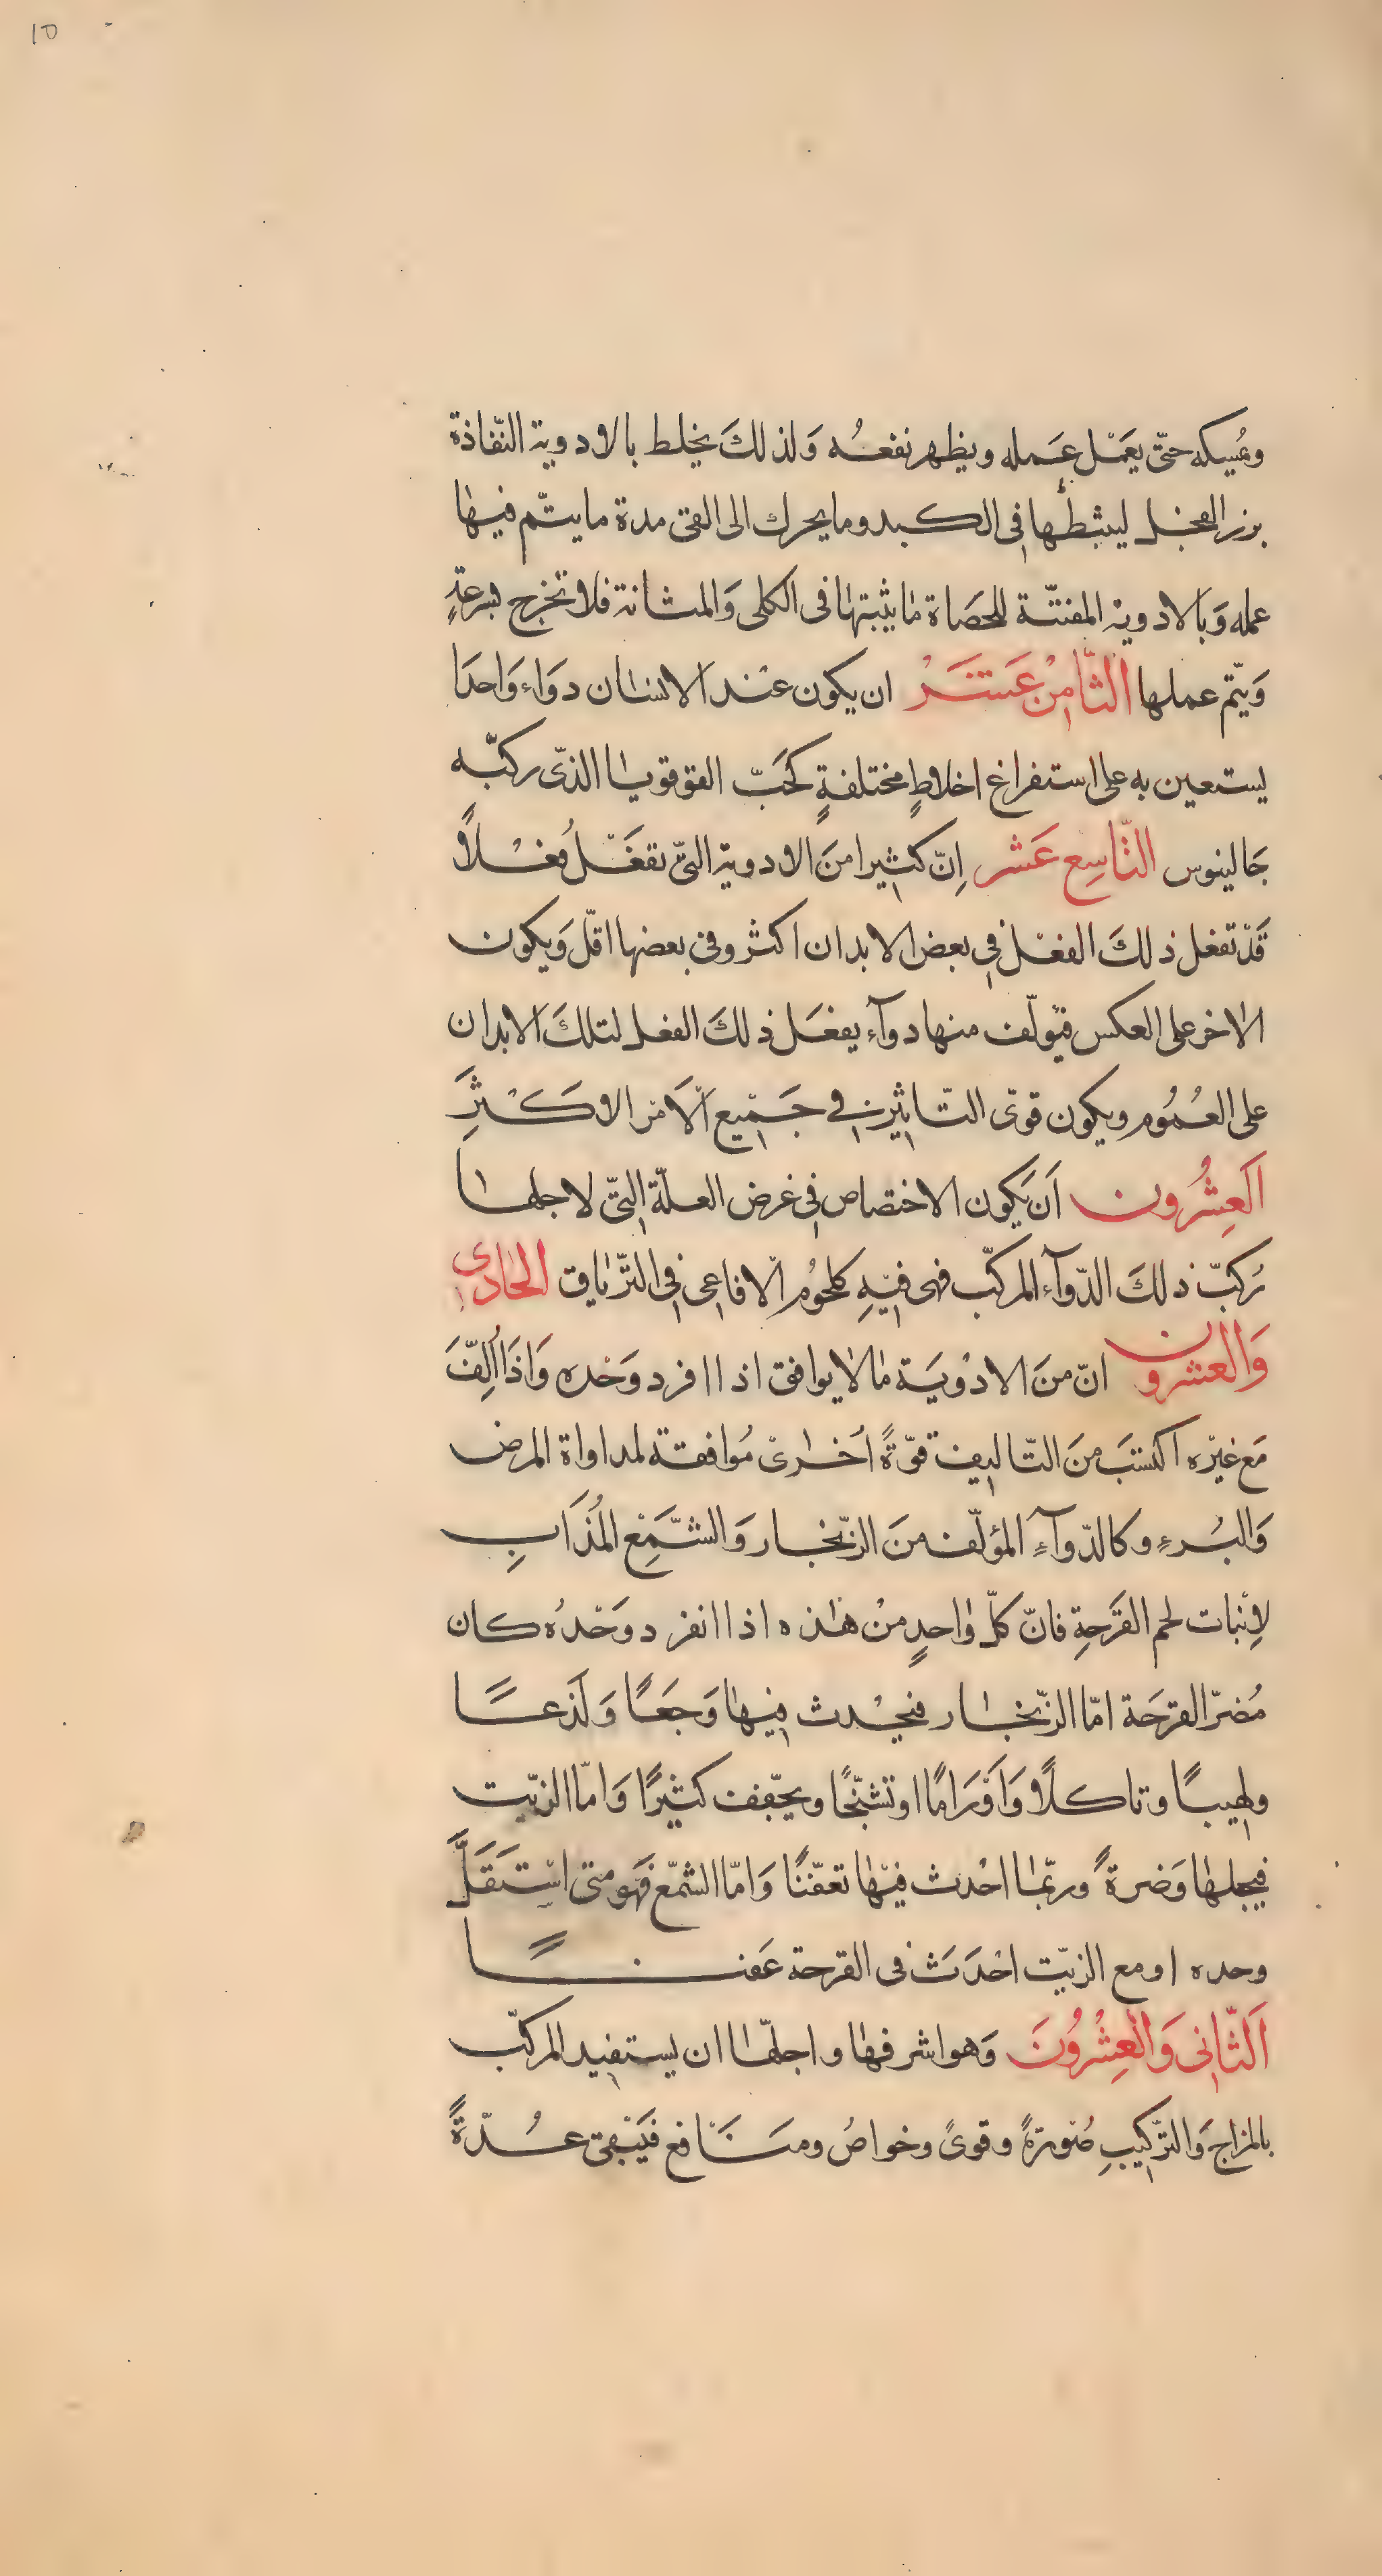 ١٥
ويمسكه حتّى يعمَل عَمله ويظهر نفعُه وَلذلكَ يخلط بالادوية النّفاذة
بزر الفجل ليثبطها فى الكبد وما يحرك الى القئ مدة ما يتّم فيها
عمله وَبالادوية المفتتّة للحصَاة ما يثبتها فى الكلى وَالمثانة فلا تخرج بسرعةٍ
وَيتّم عملها الثّامِنْ عَشَرْ ان يكون عنْد الانسان دوَاء وَاحدَا
يستعين به على استفراغ اخلاطٍ مختلفةٍ كحَبّ القوقويا الذّى ركبّه
جَالينوس التّاسِع عَشر اِنّ كثيرا منَ الادوية التّى تفعَل فعْلاً
قَدْ تفعل ذلكَ الفعْل فى بعض الابدان اكثر وفى بعضها اقلّ وَيكون
الاخر على العكس فيؤلّف منها دوآء يفعَل ذلكَ الفعل لتلكَ الابدان
على العُمُوم ويكون قوىّ التّاثير فى جَميْع اَلاَمر الاكْثَرِ
اَلعِشُرون اَن يَكون الاختصاص فى غرض العلّة التّى لاجلها
رُكبّ ذلكَ الدّوآء المركبّ فهى فيْهِ كلحوُم الافاعى فى التّرياق الحادى
وَالعشرون انّ منَ الادْويَة ما لا يوافق اذا افرد وَحْده وَاذَا اُلِفّ
مَع غيْره اكتسَب منَ التّاليف قوّةً اُخرىْ مُوافقة لمداواة المرض
وَالبُرءِ وكالدّوآءِ المؤلّف منَ الزّنجار وَالشّمَعْ المُذَابِ
لاِنْبات لحم القَرحَةِ فانّ كلّ واحدٍ منْ هذه اذا انفرد وَحْدُه كان
مُضرّ القرحَة امّا الزّنجار فيحْدث فيها وَجَعًا وَلَذعًا
ولهيبًا وتاكلًا وَاَوْرَامًا اوتشنّجًا ويجّفف كثيْرًا وَامّا الزيّت
فيجلها وَضرةً وربّما احْدث فيْها تعفّنًا وَامّا الشّمّع فَهَو متى اسْتَقَلَّ
وحده او مع الزيّت احْدَثَ فى القرحة عَفنًا
اَلثّانى وَالْعِشْرُونَ وَهو اشرفها واجلّها ان يستفيد المركبّ
بالمزاج وَالتّركيبِ صُوْرةً وقوىً وخواصُ ومنَافع فيَبْقى عدّةً